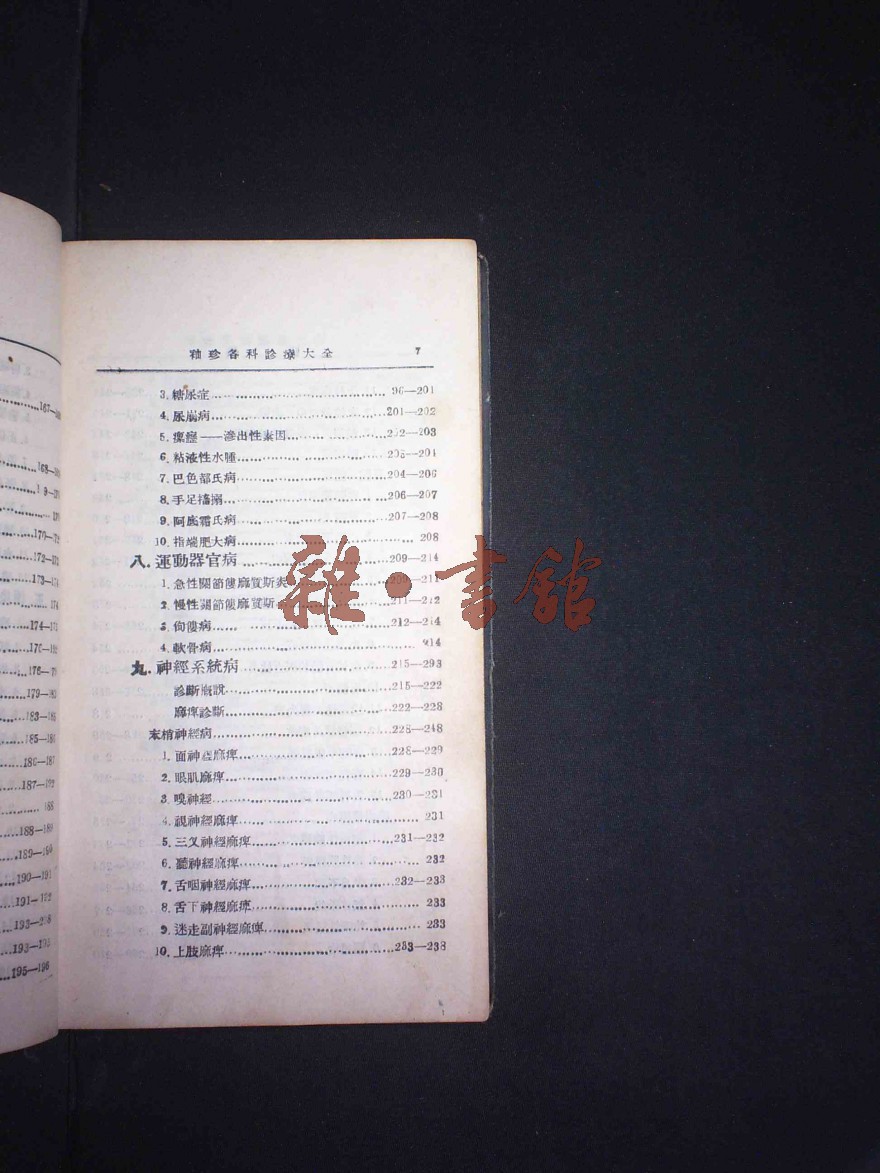 167—
168—
170—
172—
173—174
174
174—
176—
179—
183—
185—
186—187
187—
188
188—
189—
190—191
191—
193—
193—195
195—196
袖珍各科診療大全 7
3. 糖尿症 96—201
4. 尿崩病 201—202
5. 瘰癧——滲出性素因 —203
6. 粘液性水腫 203—204
7. 巴色都氏病 204—206
8. 手足搐搦 206—207
9. 阿底霜氏病 207—208
10. 指端肥大病 208
八. 運動器官病 209—214
1. 急性關節僂麻質斯 —211
2. 慢性關節僂麻質斯 211—212
3. 佝僂病 212—214
4. 軟骨病 214
九. 神經系統病 215—293
診斷概說 215—222
麻痺診斷 222—228
末梢神經病 228—248
1. 面神經麻痺 228—229
2. 眼肌麻痺 229—230
3. 嗅神經 230—231
4. 視神經麻痺 231
5. 三叉神經麻痺 231—232
6. 聽神經麻痺 232
7. 舌咽神經麻痺 232—233
8. 舌下神經麻痺 233
9. 迷走副神經麻痺 233
10. 上肢麻痺 233—238
雜·書館